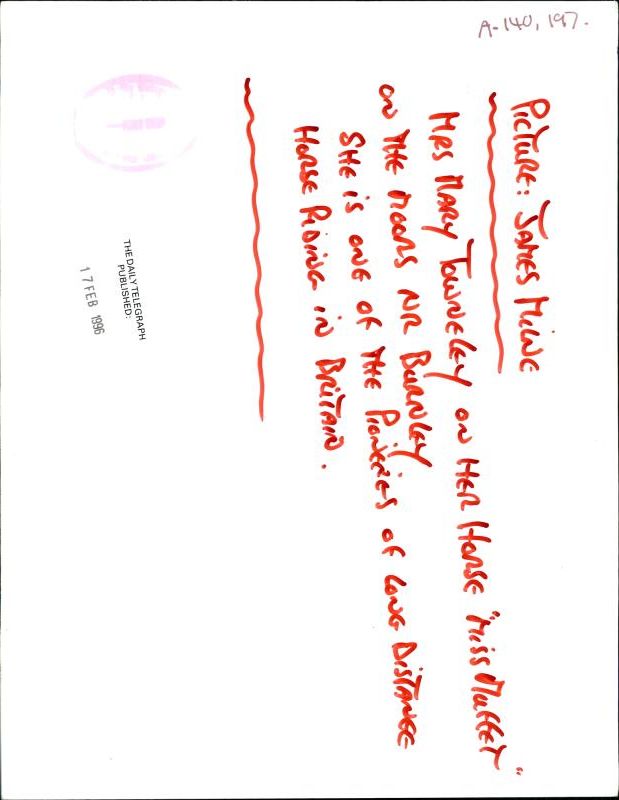 A-140,197.
PICTURE: JAMES MILNE
MRS MARY TOWNELEY ON HER HORSE "MISS MUFFET"
ON THE MOORS NR BURNLEY
SHE IS ONE OF THE PIONEERS OF LONG DISTANCE
HORSE RIDING IN BRITAIN.
THE DAILY TELEGRAPH
PUBLISHED:
17 FEB 1996